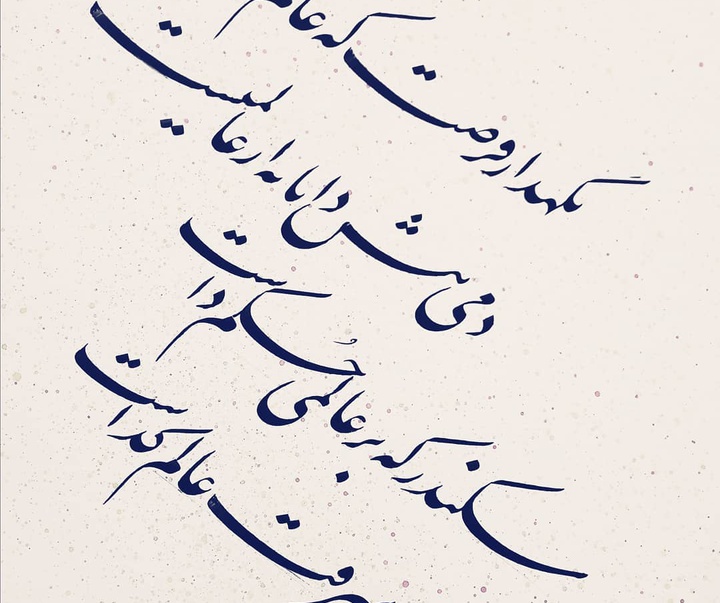 نگهدار فرصت که عالم
دمی پیش دانا به از عالمیست
سکندر که بر عالمی حکم داشت
رفت عالم گذاشت